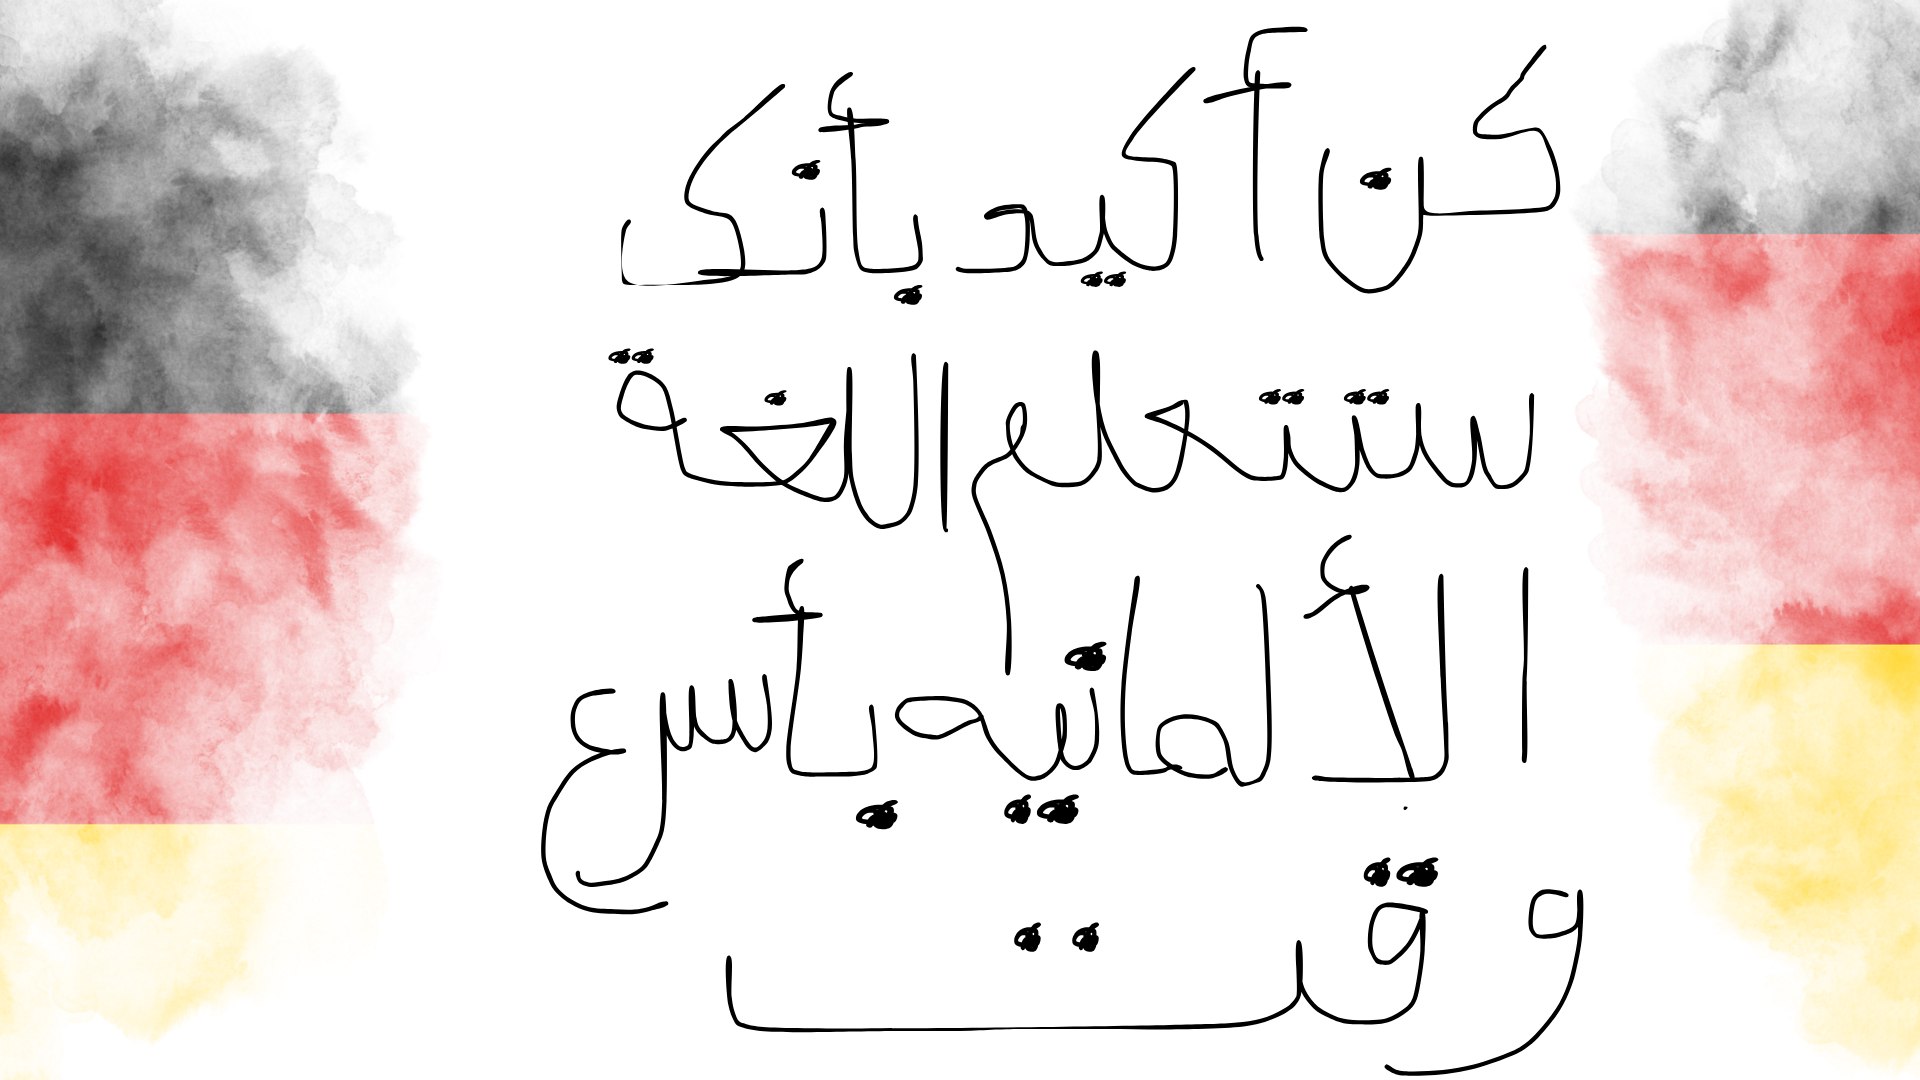 كن أكيد بأنك
ستتعلم اللغة
الألمانيه بأسرع
وقت